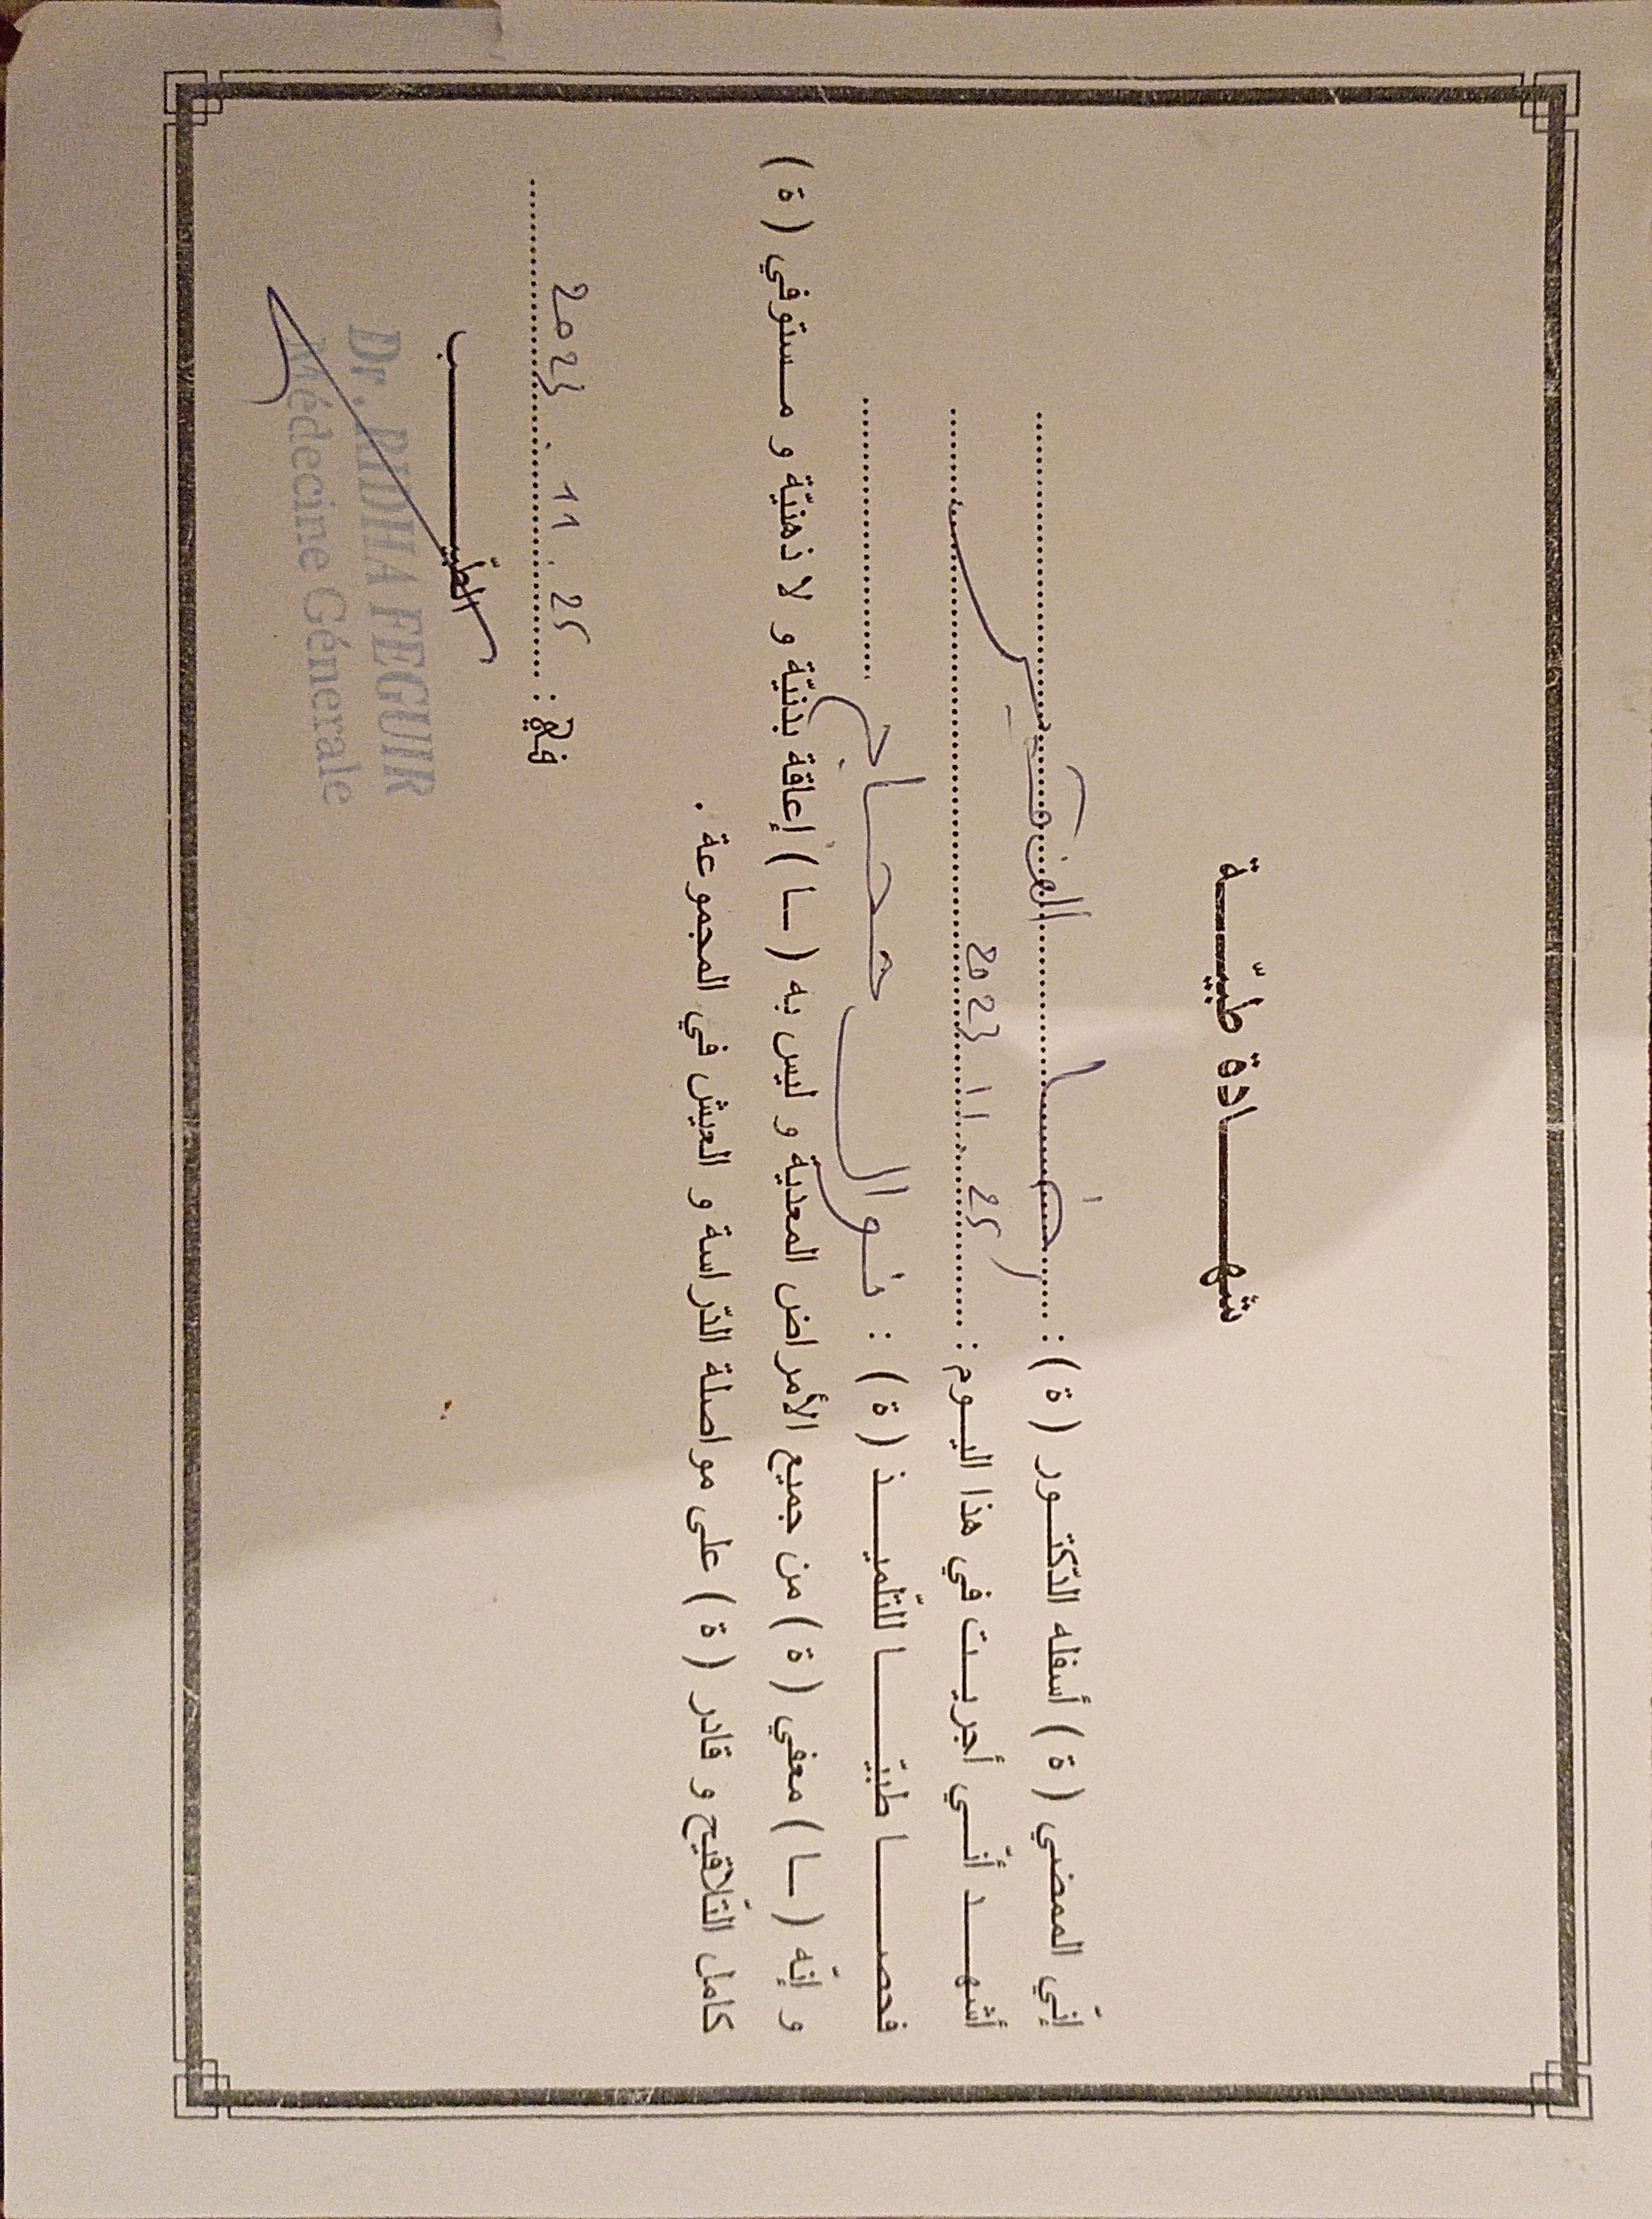 شهادة طبيّة
إنّي الممضي ( ة ) أسفله الدّكتور ( ة ) :
أشهد أنّي أجريت في هذا اليوم : 25 .11. 2023
فحصا طبيّا للتّلميذ ( ة ) : نوال
و إنّه ( ـا ) معفي ( ة ) من جميع الأمراض المعدية و ليس به ( ـا ) إعاقة بدنيّة و لا ذهنيّة و مستوفي ( ة )
كامل التّلاقيح و قادر ( ة ) على مواصلة الدّراسة و العيش في المجموعة .
في : 25 . 11 . 2023
الطّبيب
Dr. RIDHA FEGUIR
Médecine Générale